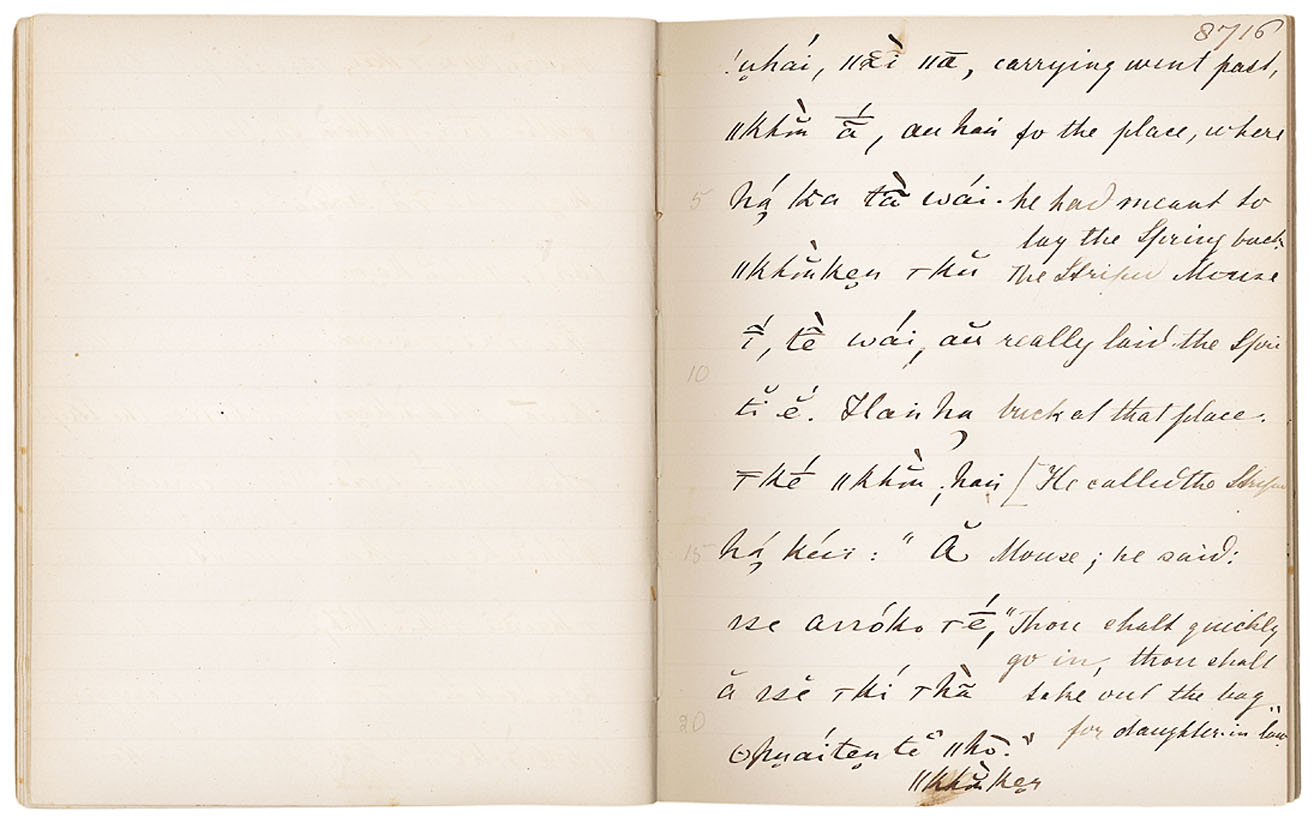 8716
!nhái, ‖xè̆i ‖ā, carrying went past,
‖khè̆n ā́, au hań to the place, where
5 há̦ ka tà̄ wái. he had meant to
lay the Spring buck.
‖khè̆nke̦n ⊤kŭ The Striped Mouse
ī́, tè̄ wái, aŭ really laid the Spring
10
tĭ é̆. Han̄ ha̦ buck at that place.
⊤ké́ ‖khè̆n, hań [He called the Striped
15 há̦ kúi: "Ă Mouse; he said:
sse arróko ⊤é̄, "Thou shalt quickly
go in, thou shalt
ă ssĕ ⊤kí ⊤hà̄ take out the bag
20 for daughter-in law"
ʘpu̦áite̦n tĕ ‖hō."
‖khè̆nke̦n